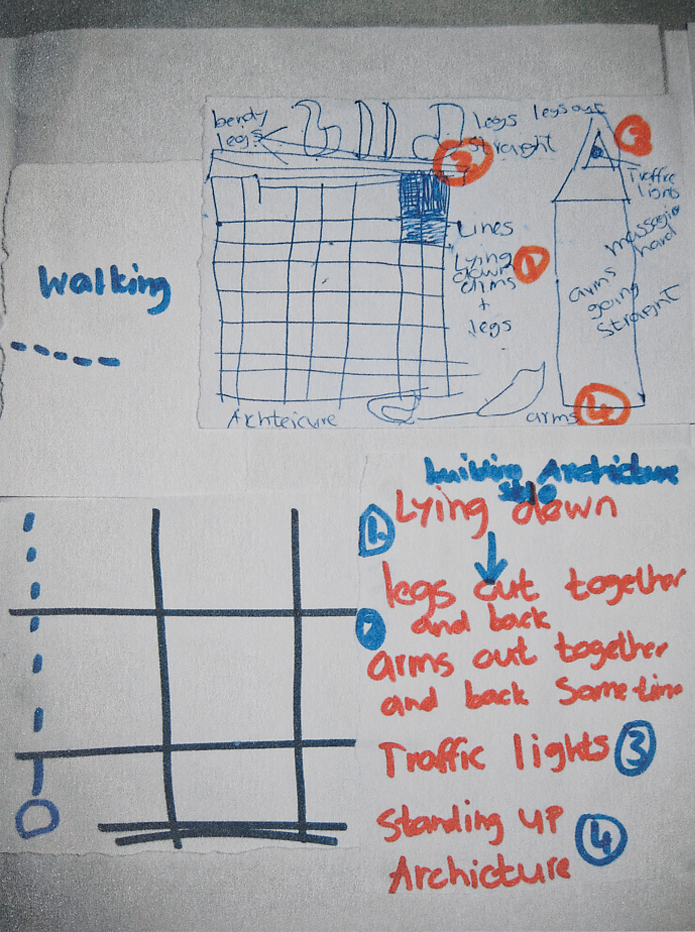 bendy
legs
legs
straight
legs out
3
2
Traffic
lights
Walking
Lines
Lying
down
arms
+
legs
1
arms
going
straight
hard
Archteicure
arms
4
building Archicture
style
1. Lying down
legs out together
2 and back
arms out together
and back Sometime
Traffic lights 3
Standing up 4
Archicture